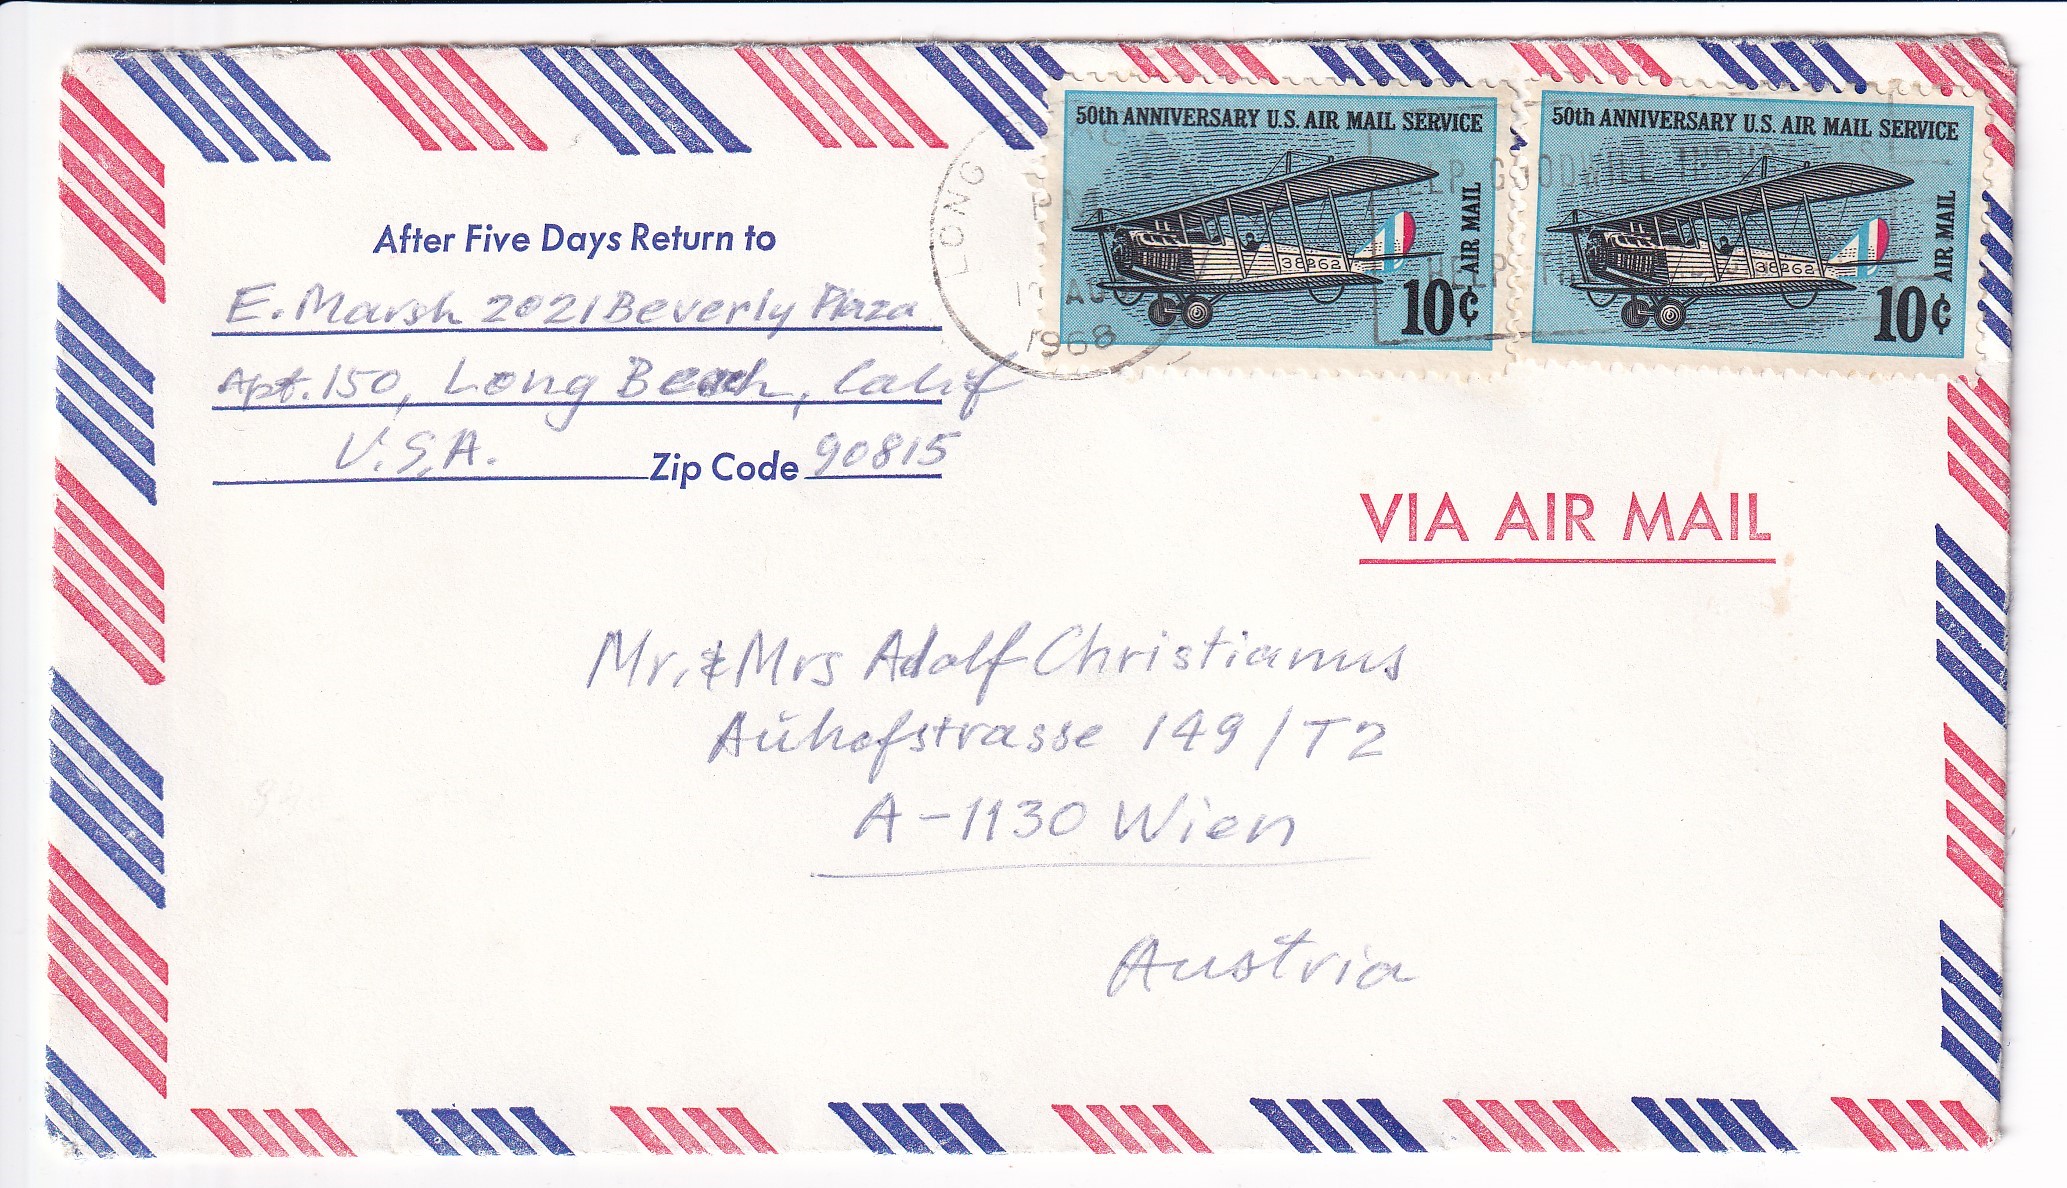 After Five Days Return to
E. Marsh 2021 Beverly Plaza
Apt. 150, Long Beach, Calif
U.S.A. Zip Code 90815
LONG
PM
AU
1968
50th ANNIVERSARY U.S. AIR MAIL SERVICE
38262
AIR MAIL
10¢
50th ANNIVERSARY U.S. AIR MAIL SERVICE
38262
AIR MAIL
10¢
GOODWILL INDUSTRIES
VIA AIR MAIL
Mr. & Mrs Adolf Christianus
Auhofstrasse 149/T2
A-1130 Wien
Austria